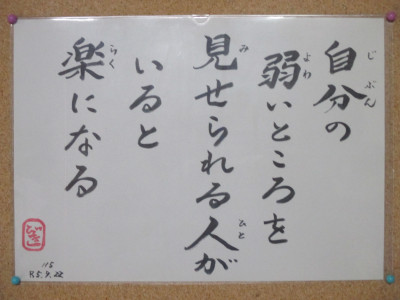 自分の
弱いところを
見せられる人が
いると
楽になる
じ ぶん
よわ
み
ひと
らく